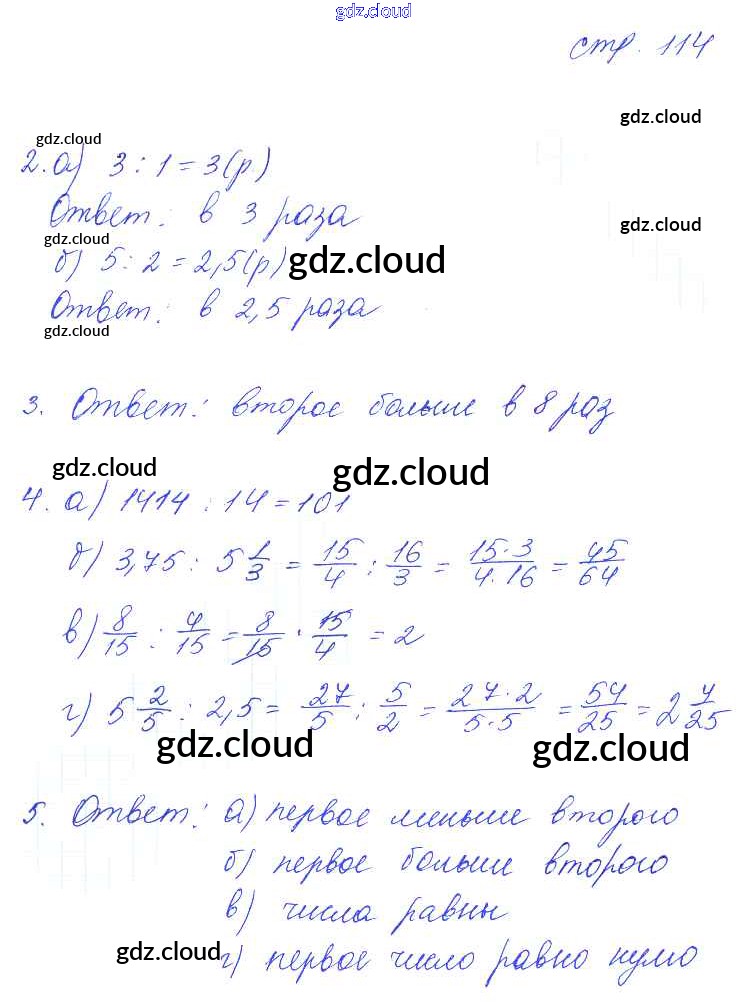 gdz.cloud
стр. 114
gdz.cloud
gdz.cloud
2. а) 3 : 1 = 3 (р.)
Ответ: в 3 раза
gdz.cloud
gdz.cloud
б) 5 : 2 = 2,5 (р) gdz.cloud
Ответ: в 2,5 раза
gdz.cloud
3. Ответ: второе больше в 8 раз
gdz.cloud gdz.cloud
4. а) 1414 : 14 = 101
б) 3,75 : 5 1/3 = 15/4 : 16/3 = 15·3/4·16 = 45/64
в) 8/15 : 4/15 = 8/15 · 15/4 = 2
г) 5 2/5 : 2,5 = 27/5 : 5/2 = 27·2/5·5 = 54/25 = 2 4/25
gdz.cloud gdz.cloud
5. Ответ: а) первое меньше второго
б) первое больше второго
в) числа равны
gdz.cloud
г) первое число равно нулю